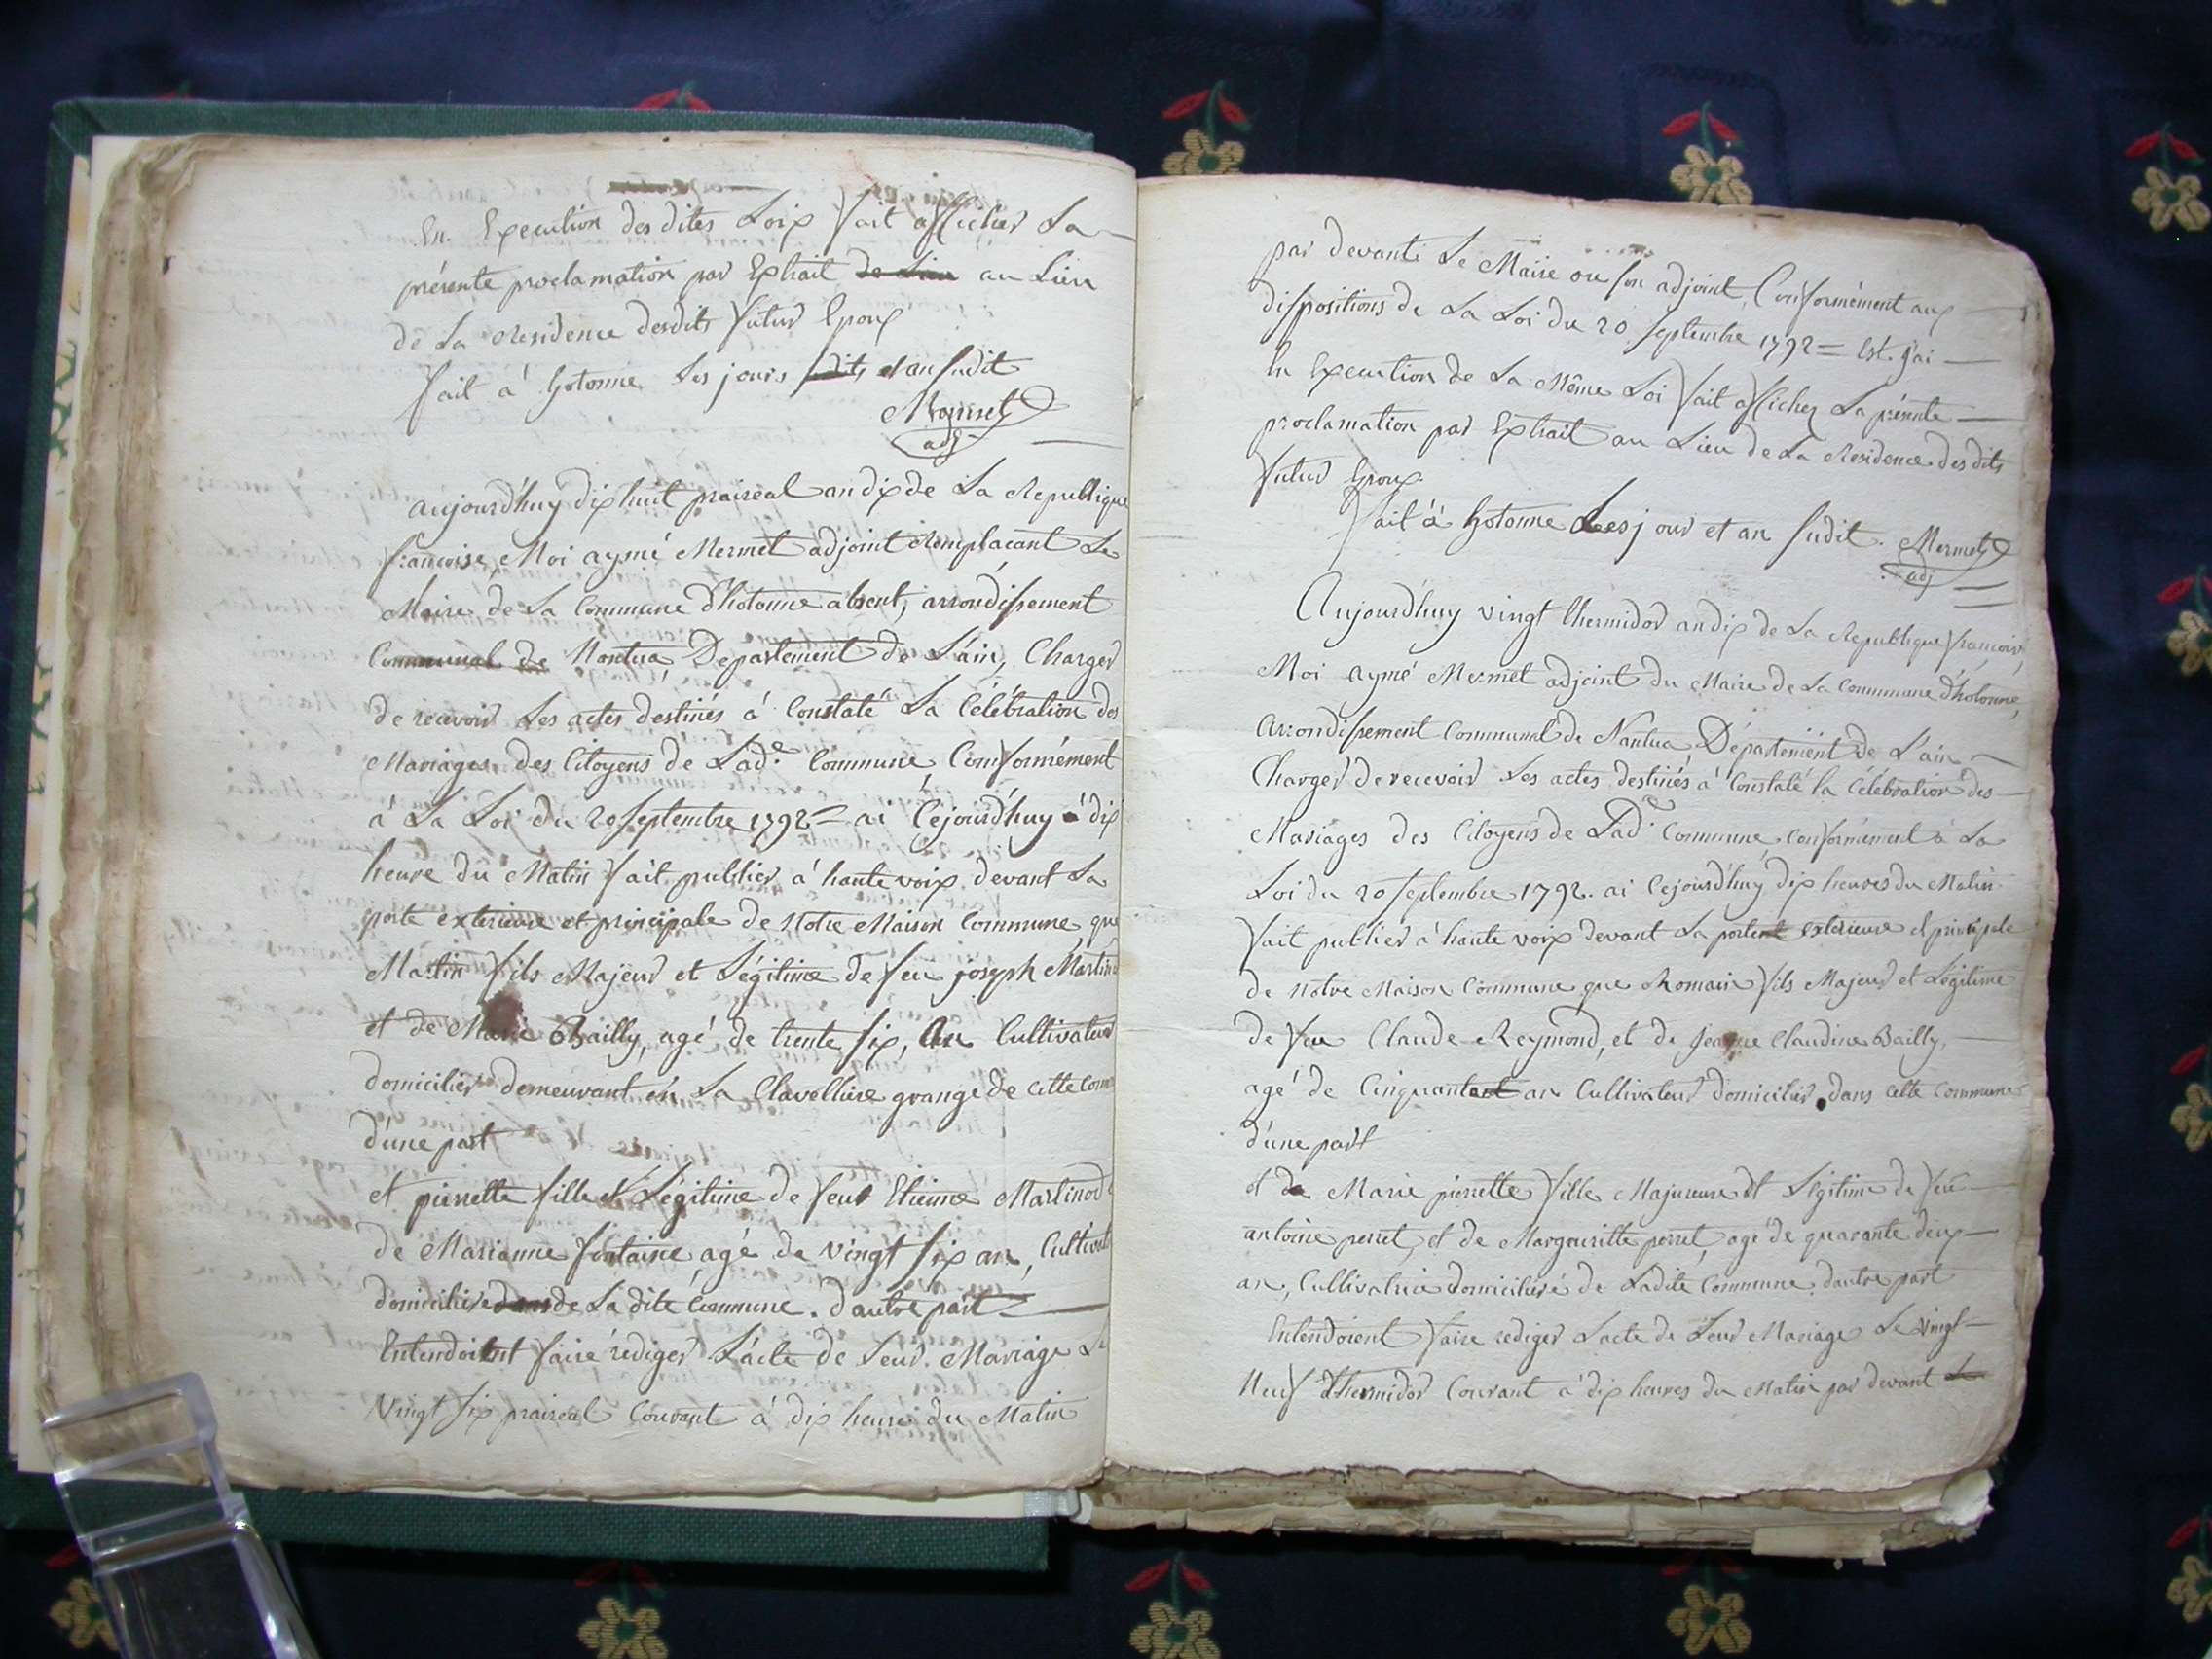 En Execution des dites Loix fait afficher La
présente proclamation par Extrait de Lieu au Lieu
de La Residence desdits futur Epoux
fait à hotonne Les jours sudits et an sudit
Mermet
adj
aujourd'huy dix huit praireal an dix de La Republique
francoise, Moi aymé Mermet adjoint Remplacant Le
Maire de La Commune d'hotonne absent, arrondissement
Communal de Nantua, Departement de L'ain, Charger
de recevoir Les actes destinés à Constaté La Célébration des
Mariages des Citoyens de Lad.e Commune Conformément
à La Loi du 20 septembre 1792 = ai Cejourd'huy à dix
heure du Matin fait publier à haute voix devant La
porte exterieure et principale de Notre Maison Commune que
Martin fils Majeur et Légitime de feu joseph Martin
et de Marie Bailly, agé de trente six, An Cultivateur
domicilier demeurant en La Clavelliere grange de cette com
d'une part
et pierrette fille et Légitime de feut Etienne Martinod
de Marianne fontaine agé de vingt six an, Cultivat
domiciliée dans de La dite Commune. d'autre part
Entendoient faire rédiger L'acte de Leur Mariage Le
Vingt six praireal Courant à dix heure du Matin
par devant Le Maire ou son adjoint, Conformément aux
dispositions de La Loi du 20 septembre 1792 = Est. j'ai
En Execution de La Même Loi fait afficher La présente
proclamation par Extrait au Lieu de La Residence des dits
futur Epoux.
fait à hotonne Les jour et an sudit. Mermet
adj
Aujourd'huy vingt thermidor an dix de La Republique francoise,
Moi aymé Mermet adjoint du Maire de La Commune d'hotonne,
Arrondissement Communal de Nantua Département de L'ain
Charger de recevoir Les actes destinés à Constaté la Célébration des
Mariages des Citoyens de Lad.e Commune Conformément à La
Loi du 20 septembre 1792. ai Cejourd'huy dix heures du Matin
fait publier à haute voix devant La porte exterieure et principale
de Notre Maison Commune que Romain fils Majeur et Légitime
de feu Claude Reymond, et de Jeanne Claudine Bailly,
agé de Cinquante an Cultivateur domicilier dans cette Commune
d'une part
et de Marie pierrette fille Majeure et Légitime de feu
antoine perret, et de Margueritte perret, agé de quarante deux
an, Cultivatrice domiciliée de Ladite Commune, d'autre part
Entendoient faire rediger L'acte de Leur Mariage Le vingt
Neuf thermidor Courant à dix heures du Matin par devant Le